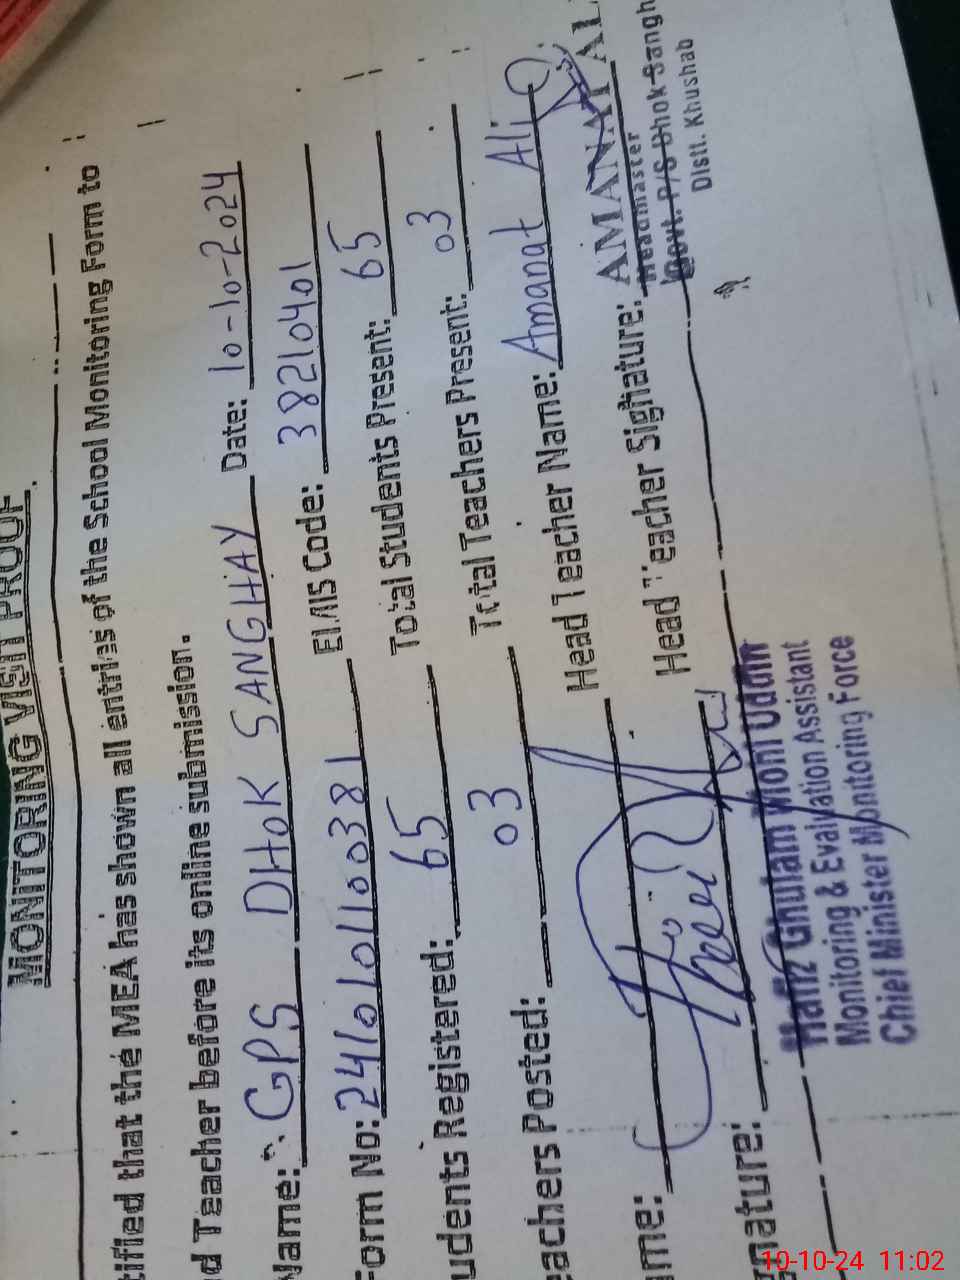 MONITORING VISIT PROOF
tified that the MEA has shown all entries of the School Monitoring Form to
d Teacher before its online submission.
Name: GPS DHOK SANGHAY Date: 10-10-2024
Form No: 2410101110381 EMIS Code: 38210401
udents Registered: 65 Total Students Present: 65
achers Posted: 03 Total Teachers Present: 03
me: Head Teacher Name: Amanat Ali
gnature: Head Teacher Signature:
AMANAT AL
Headmaster
Govt. P/S Dhok Sangh
Distt. Khushab
Hafiz Ghulam Moni Uddin
Monitoring & Evaluation Assistant
Chief Minister Monitoring Force
10-10-24 11:02